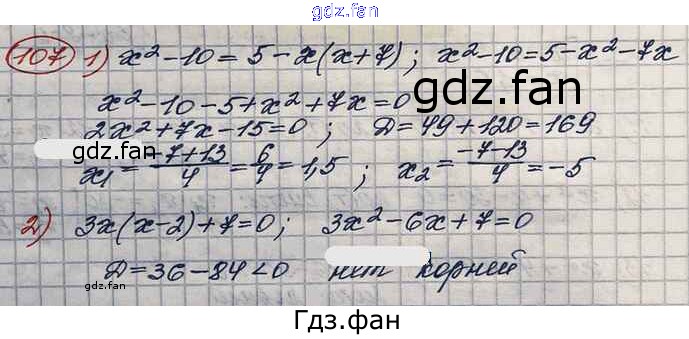 gdz.fan
107 1) x² - 10 = 5 - x(x + 7) ; x² - 10 = 5 - x² - 7x
x² - 10 - 5 + x² + 7x = 0
gdz.fan
2x² + 7x - 15 = 0 ; D = 49 + 120 = 169
gdz.fan
x₁ = (-7+13)/4 = 6/4 = 1,5 ; x₂ = (-7-13)/4 = -5
2) 3x(x - 2) + 7 = 0 ; 3x² - 6x + 7 = 0
D = 36 - 84 < 0 нет корней
gdz.fan
gdz.fan
Гдз.фан